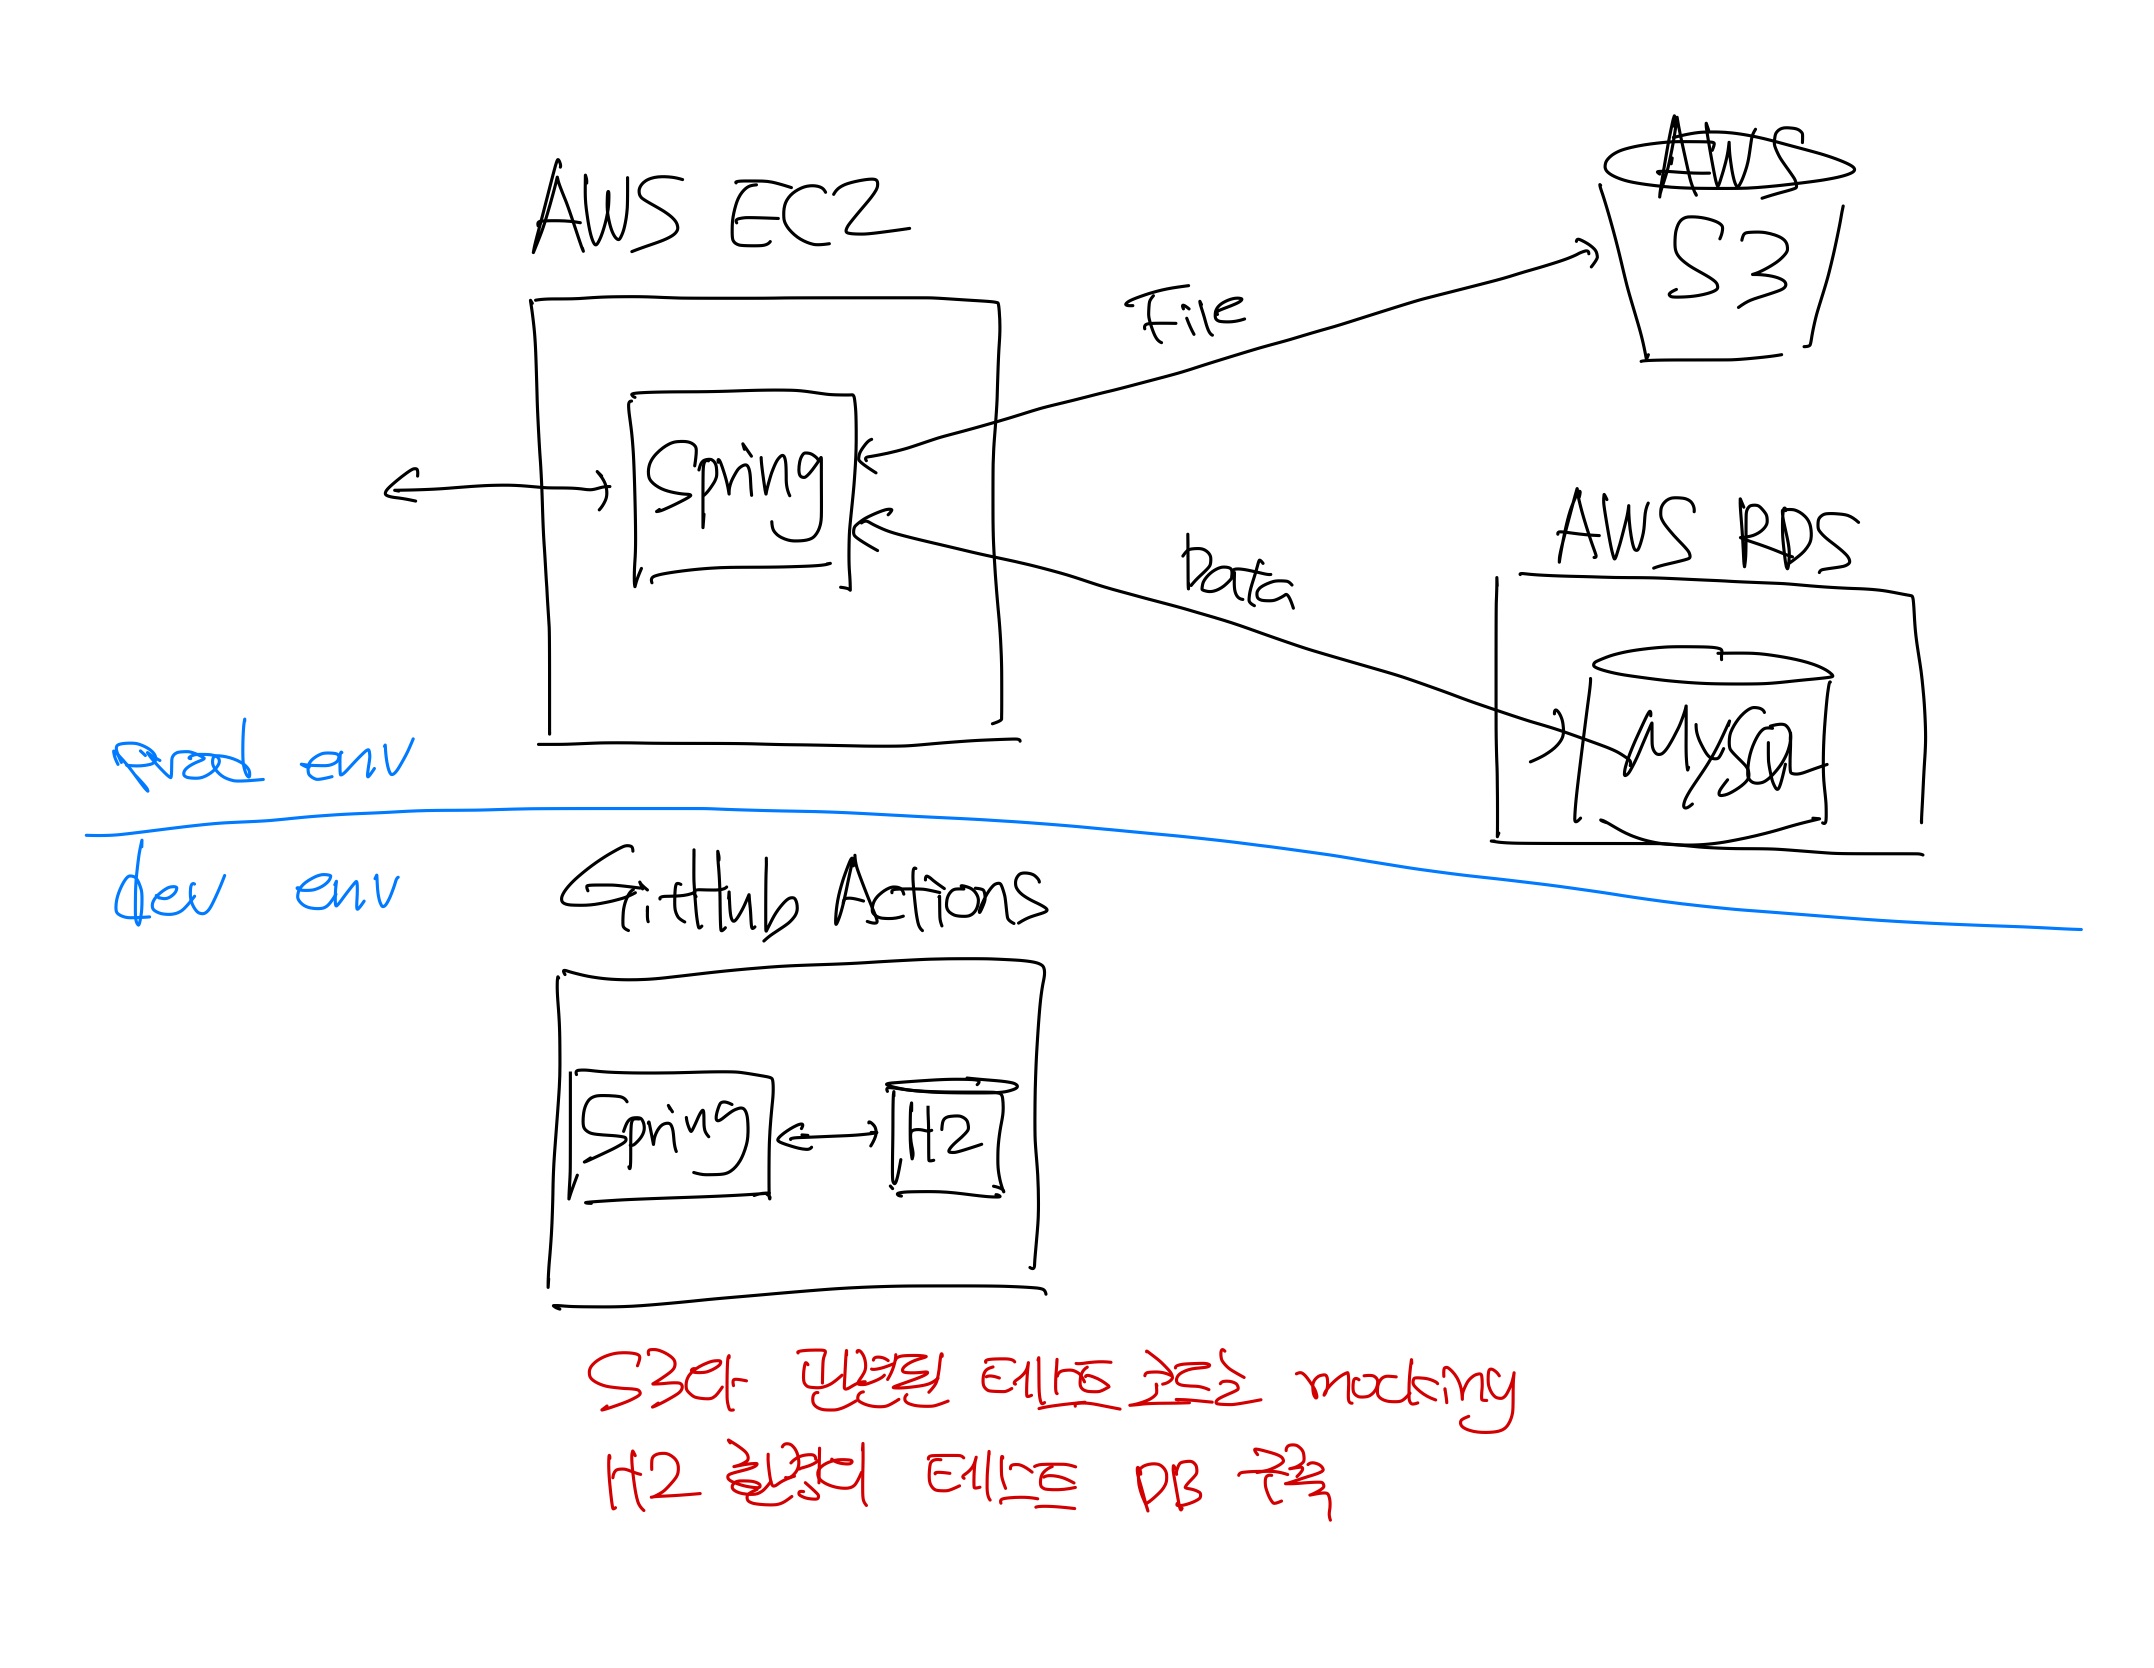 AWS EC2
AWS
S3
File
Spring
AWS RDS
Data
MySQL
Prod env
dev env
GitHub Actions
Spring
H2
S3와 관련된 테스트 코드는 mocking
H2 활용해 테스트 DB 구축